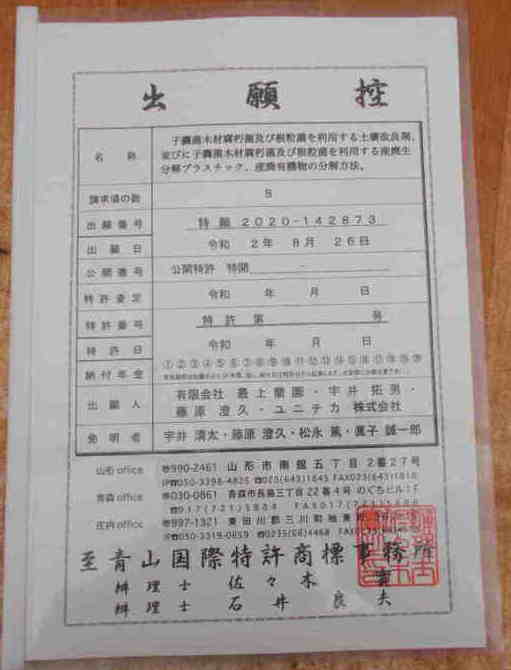 出願控
名称
子嚢菌木材腐朽菌及び根粒菌を利用する土壌改良剤、
並びに子嚢菌木材腐朽菌及び根粒菌を利用する産廃生
分解プラスチック、産廃有機物の分解方法。
請求項の数 5
出願番号 特願2020-142873
出願日 令和 2年 8月 26日
公開番号 公開特許 特開 -
特許査定 令和 年 月 日
特許番号 特許第 号
特許日 令和 年 月 日
納付年金 ①②③④⑤⑥⑦⑧⑨⑩⑪⑫⑬⑭⑮⑯⑰⑱⑲⑳
出願人
有限会社 最上蘭園・宇井拓男・
藤原澄久・ユニチカ 株式会社
発明者 宇井清太・藤原澄久・松永篤・眞子誠一郎
山形office 〒990-2461 山形市南館五丁目2番27号
青森office 〒030-0861 青森市長島三丁目22番4号 のぐちビル1F
庄内office 〒997-1321 東田川郡三川町
至青山国際特許商標事務所
辨理士 佐々木
辨理士 石井良夫